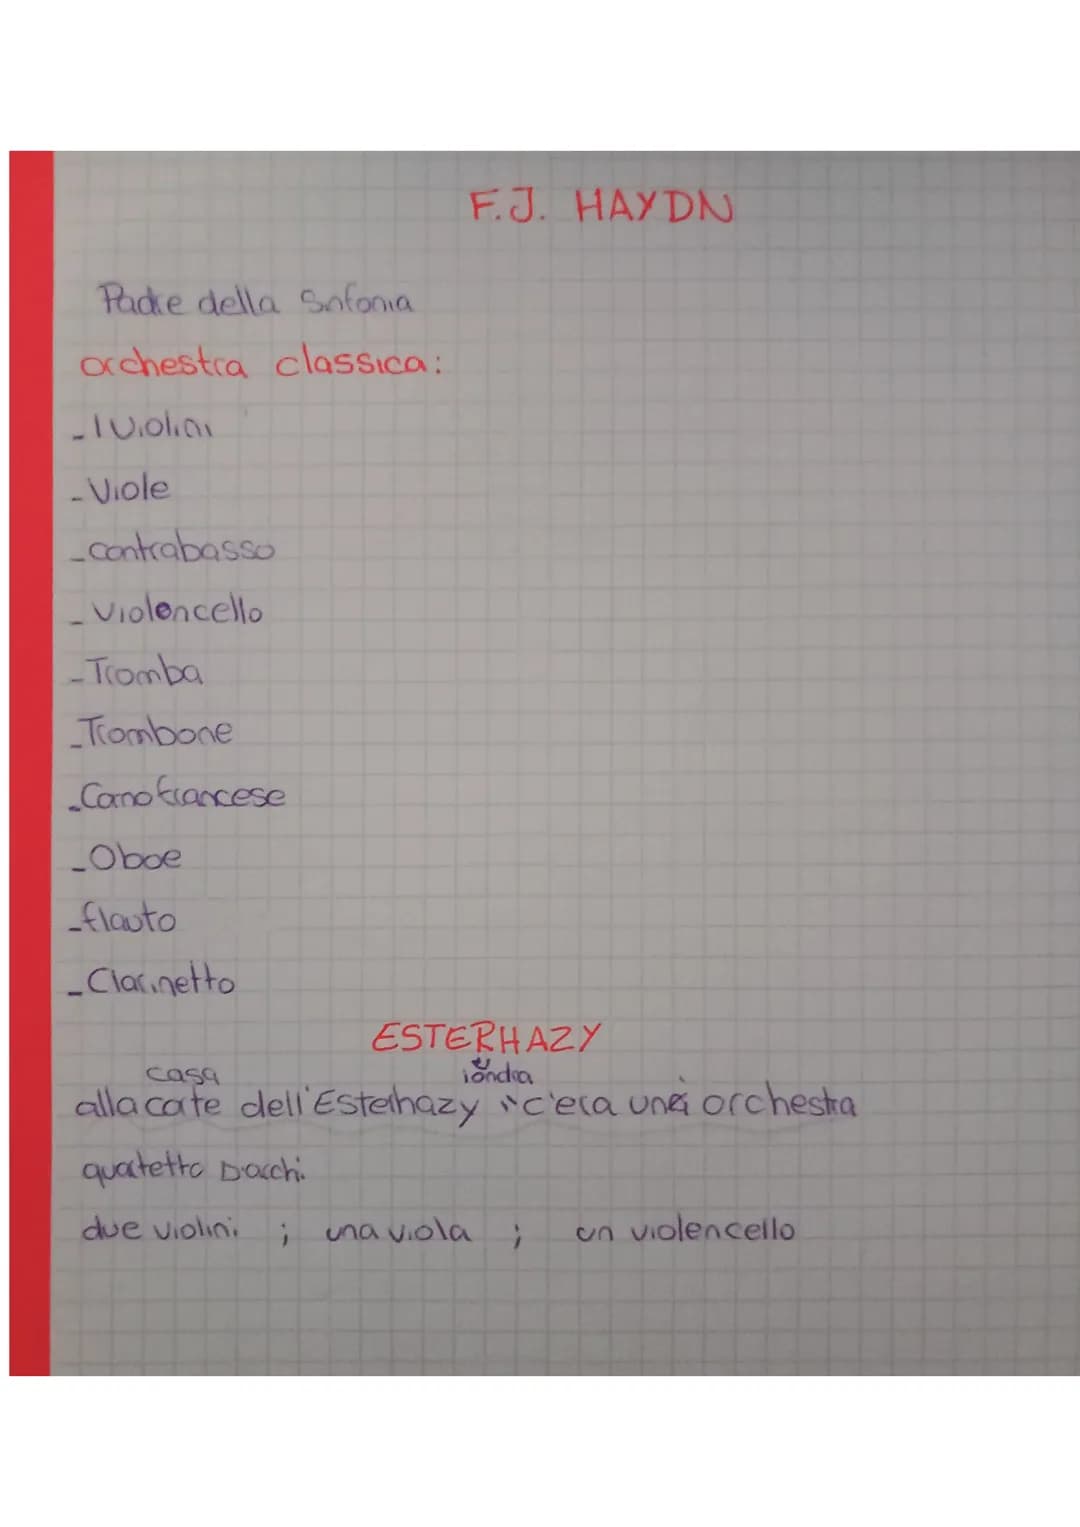 F.J. HAYDN
Padre della Sinfonia
orchestra classica:
- I Violini
- Viole
- contrabasso
- Violoncello
- Tromba
- Trombone
- Corno francese
- Oboe
- flauto
- Clarinetto
ESTERHAZY
casa londra
alla corte dell'Esterhazy c'era una orchestra
quartetto D'archi.
due violini ; una viola ; un violencello